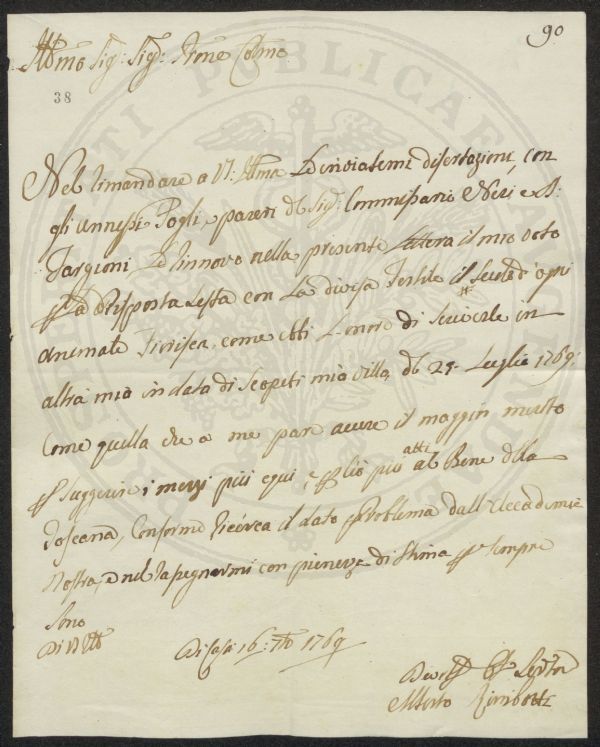 90
Illmo Sig: Sig: Prone Colmo
38
Nel rimandare a VS: Illma Le inviatemi disertazioni, con
gli annessi Fogli, e pareri di Sig: Commissario Neri e
Targioni Le rinnovo nella presente Lettera il mio voto
la Risposta Lessa con La divisa Fertile il d'ogni
animale, come ebbi L'onore di scriverle in
altra mia in data di Scopeti mia villa, 29 Luglio 1769:
Come quella che a me pare avere il maggior merito
suggerire i mezzi più equi, e più atti al Bene della
Toscana, Conforme ricerca il dato Problema dall'Accademia
Nostra, e nel rapegnarmi con pienezza di stima sempre
Sono
Di VS Illma
Di Casa 16: 7bre 1769
Devmo Servitor
Alberto Rimbotti
PUBLICAE